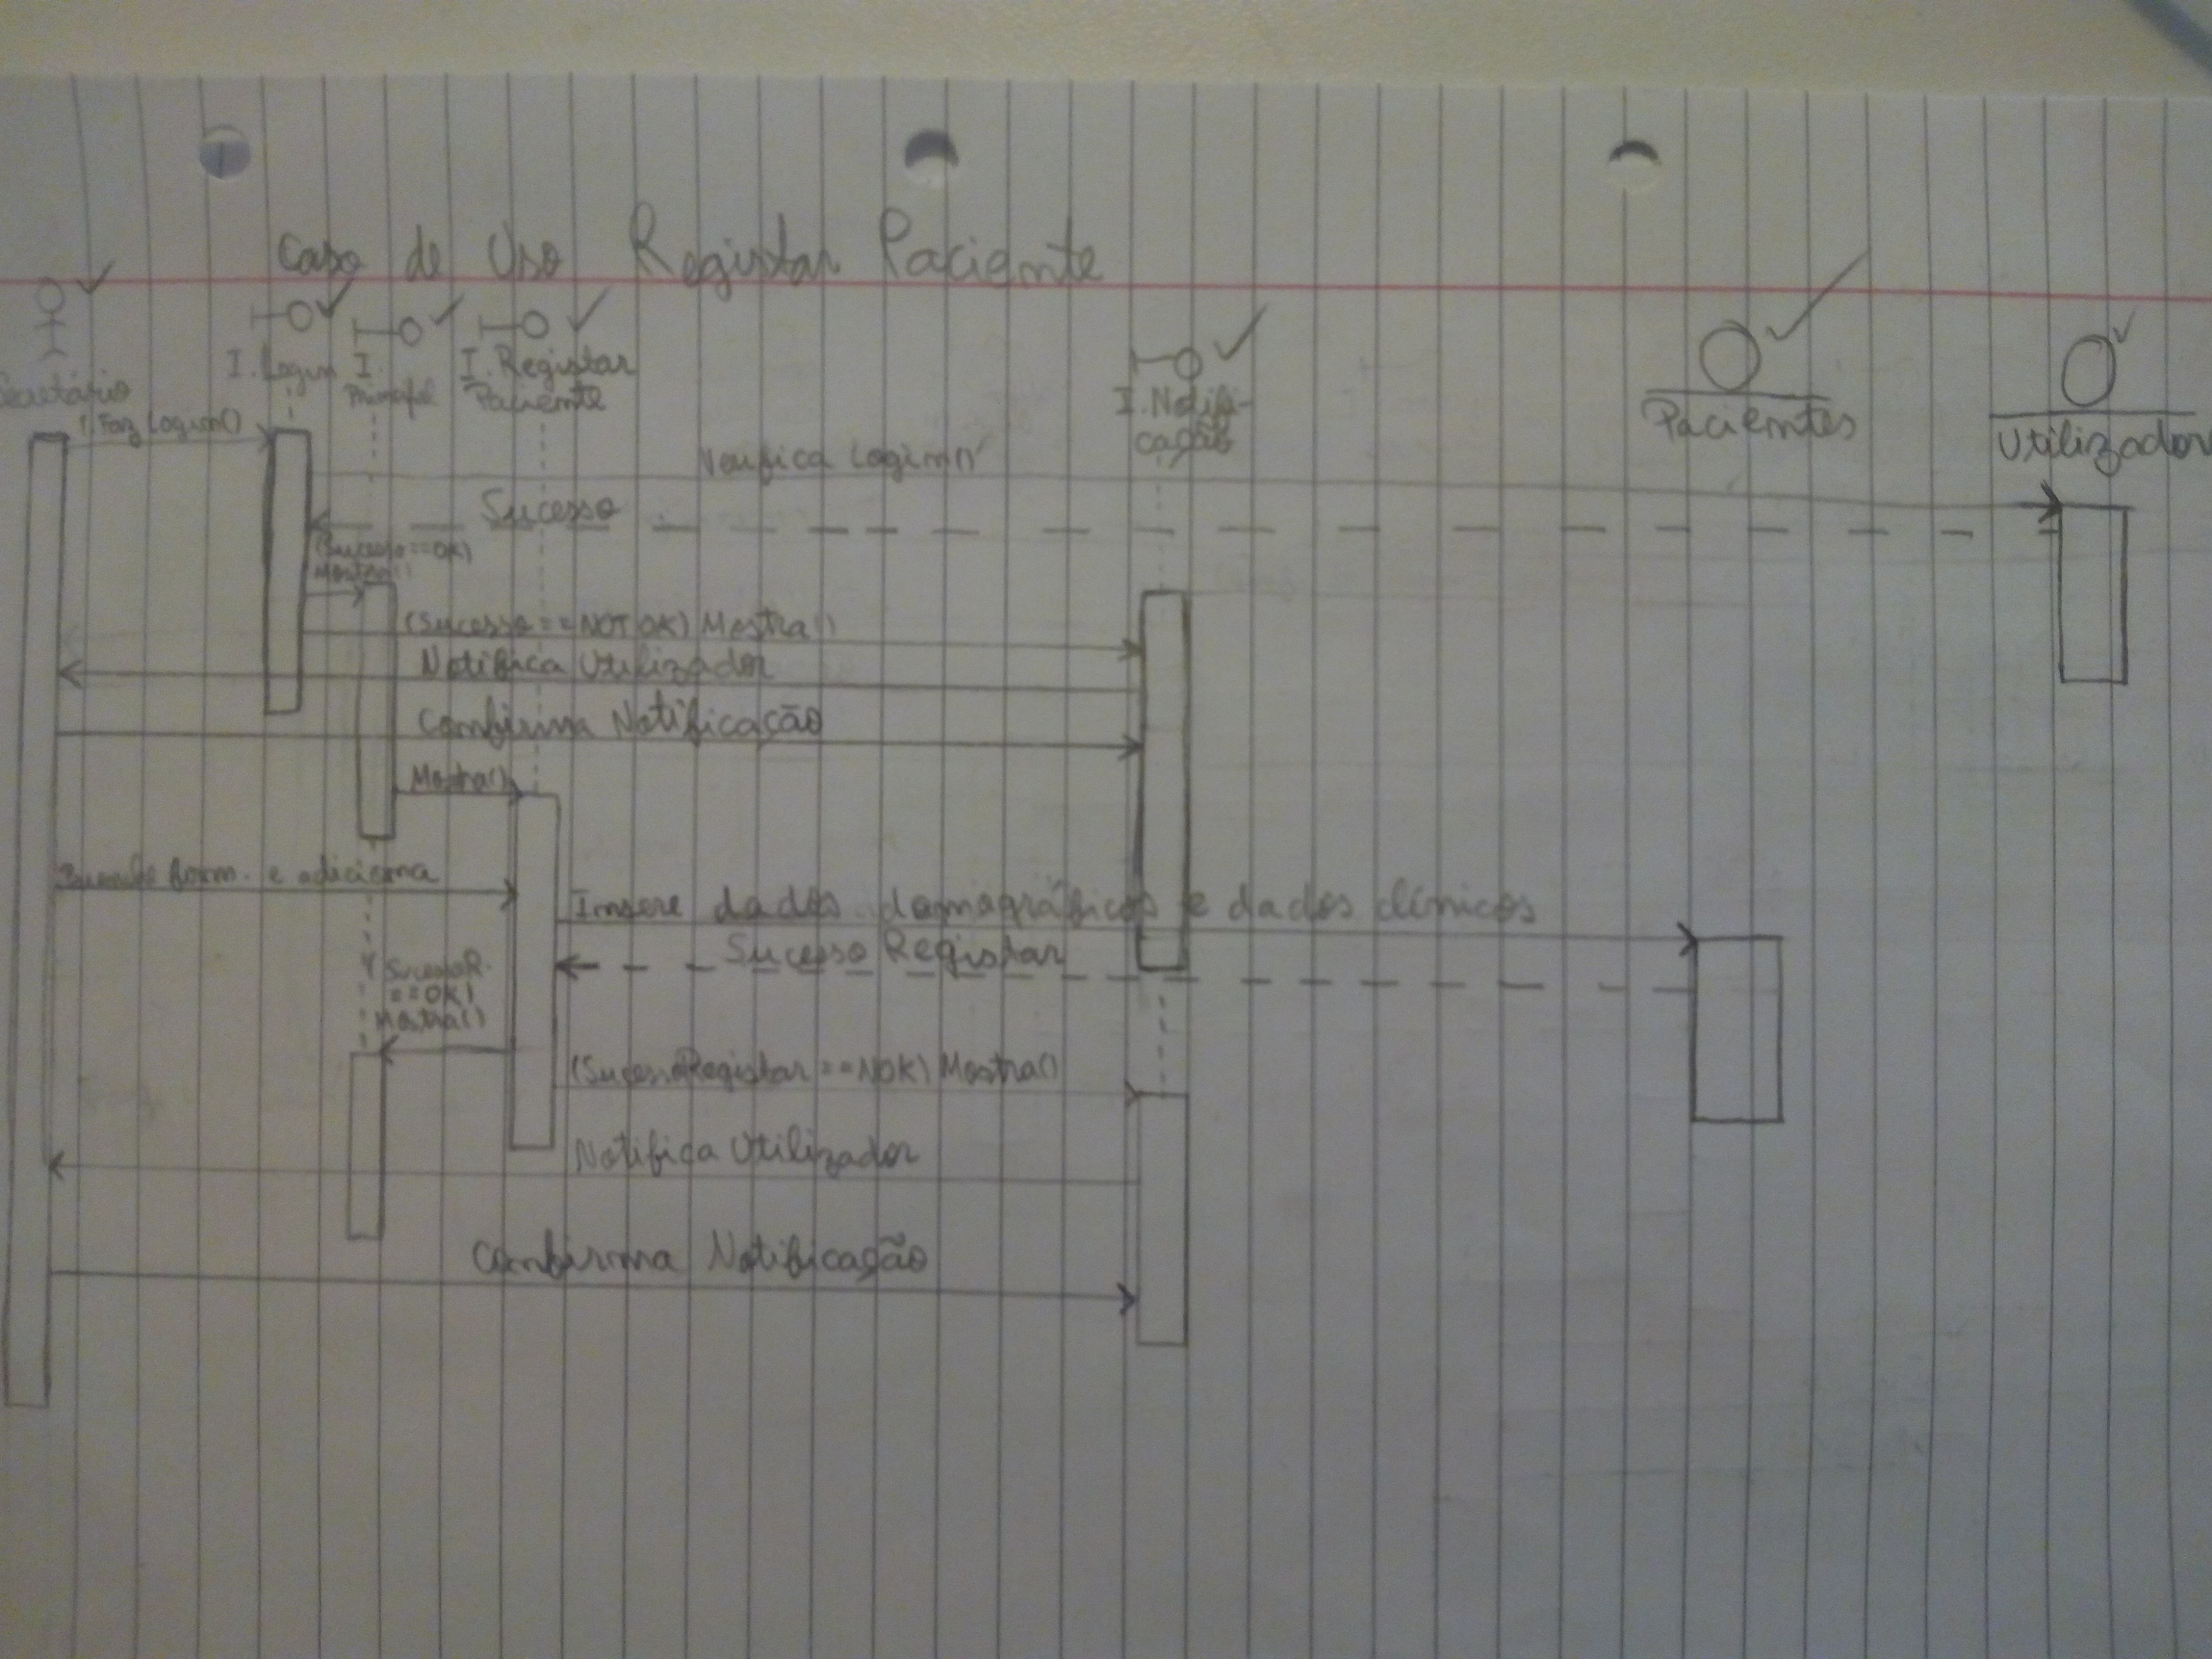 Caso de Uso Registar Paciente
Secretário
I. Login
I.
Principal
I. Registar
Paciente
I. Notifi-
cação
Pacientes
Utilizador
1. Faz Login()
Verifica Login()
Sucesso
(Sucesso==OK)
Mostra()
(Sucesso==NOT OK) Mostra()
Notifica Utilizador
Confirma Notificação
Mostra()
form. e adiciona
Insere dados demográficos e dados clínicos
Sucesso Registar
SucessoR.
==OK)
Mostra()
(SucessoRegistar==NOK) Mostra()
Notifica Utilizador
Confirma Notificação